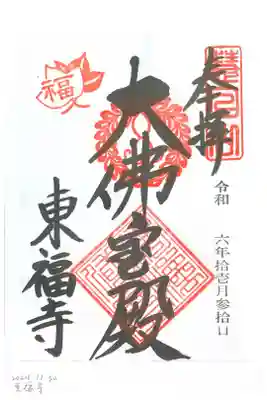 奉拝
令和 六年拾壱月参拾日
大佛宝殿
東福寺
福
2024 11 30
東福寺